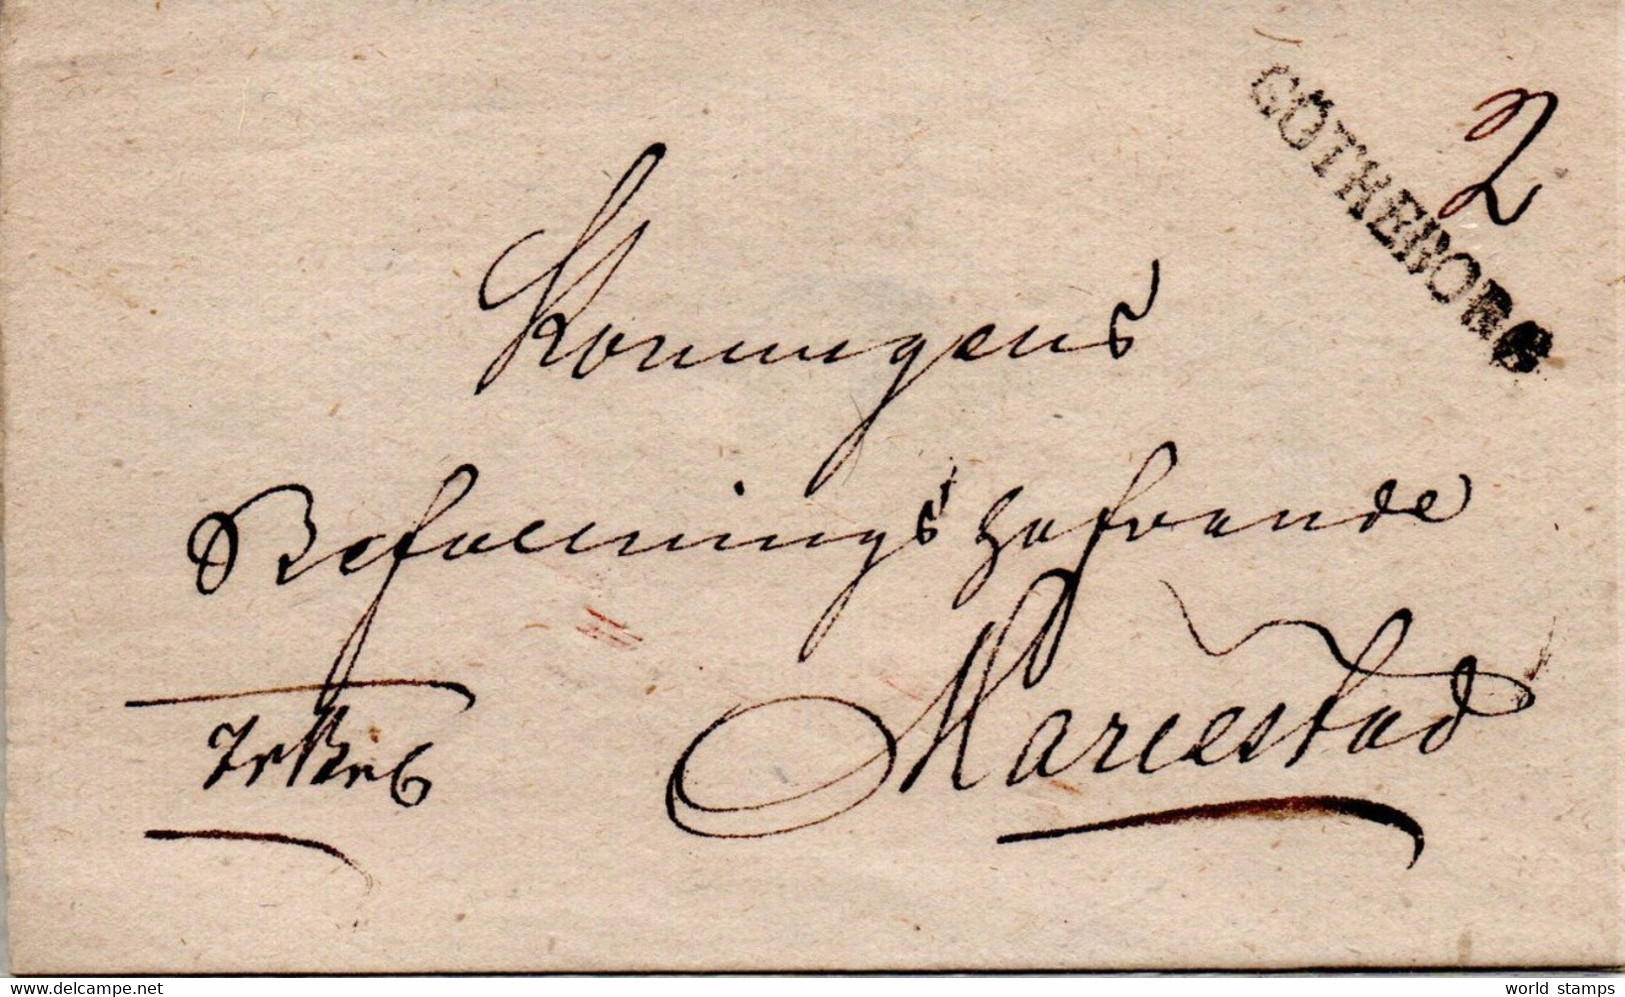 GÖTHEBORG
2
Konungens
Befallningshafvande
Mariestad
www.delcampe.net
world_stamps